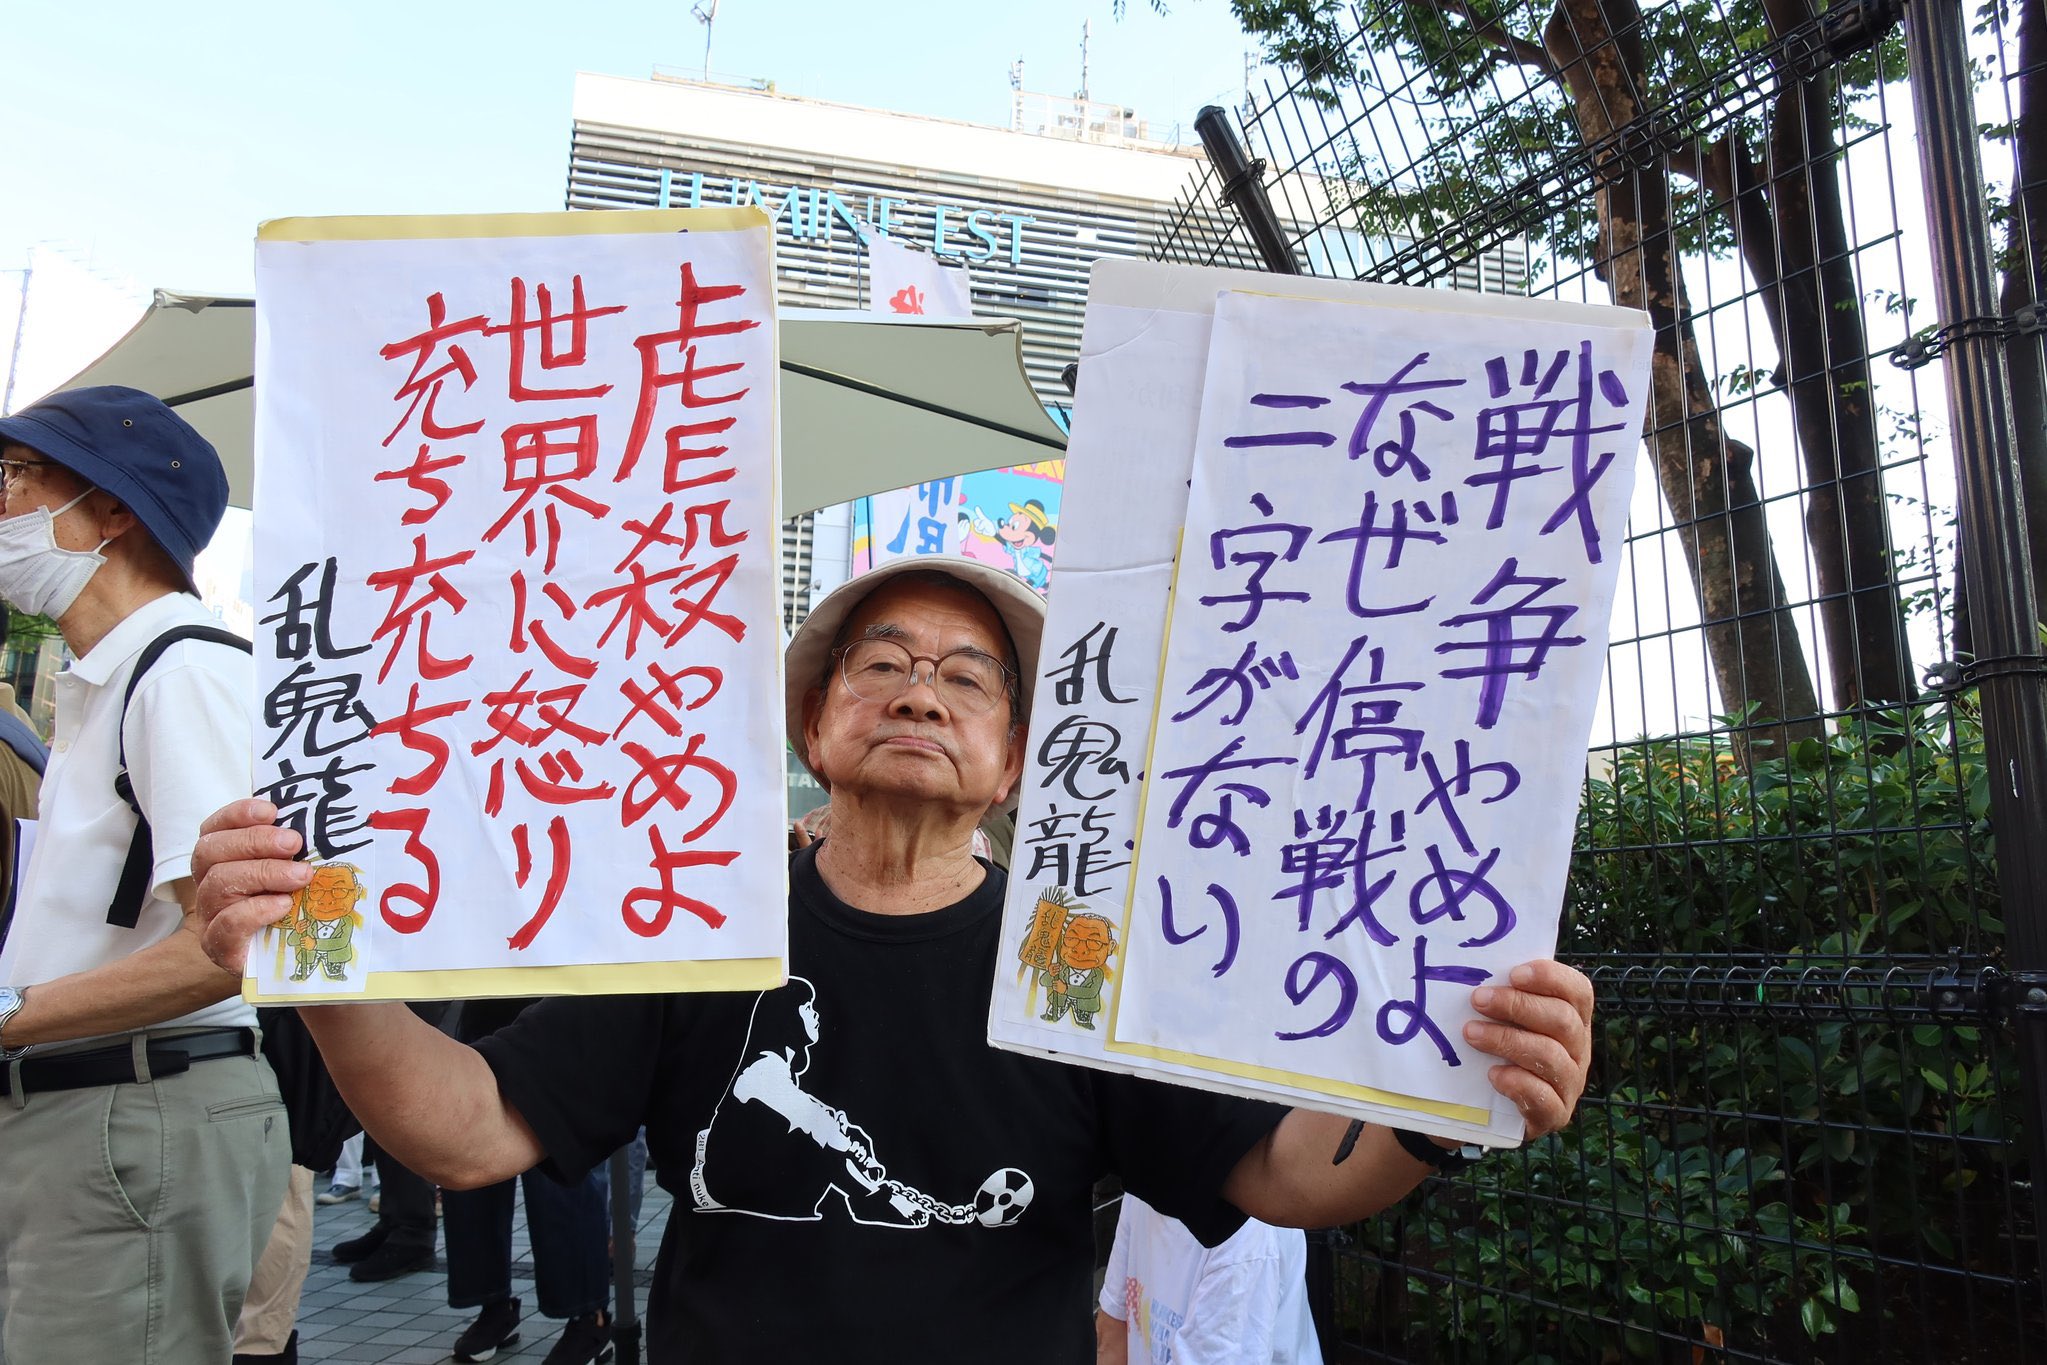 LUMINE EST
虐殺やめよ
世界に怒り
充ち充ちる
乱鬼龍
戦争やめよ
なぜ停戦の
二字がない
乱鬼龍
乱鬼龍
Anti nuke